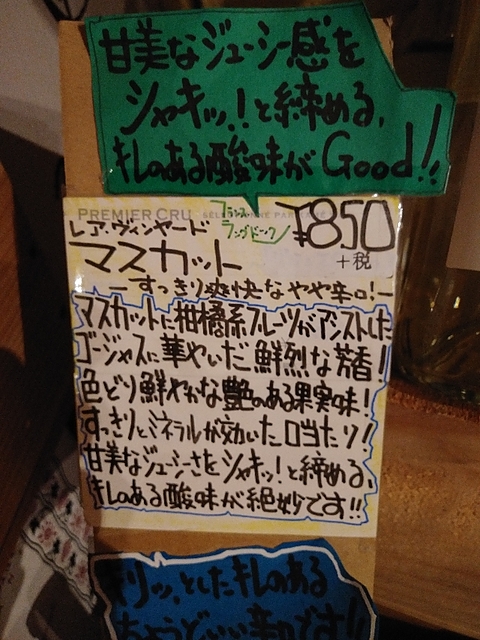 甘美なジューシー感を
シャキッ!と締める、
キレのある酸味がGood!!
PREMIER CRU
フランス
ラングドック
¥850
+税
レア・ヴィンヤード
マスカット
ーすっきり爽快なやや辛口!ー
マスカットに柑橘系フルーツがアシストした
ゴージャスに華やいだ鮮烈な芳香!
色どり鮮やかな艶のある果実味!
すっきりとミネラルが効いた口当たり!
甘美なジューシーさをシャキッ!と締める、
キレのある酸味が絶妙です!!
キリッ、としたキレのある
ちょうどいい辛口です!